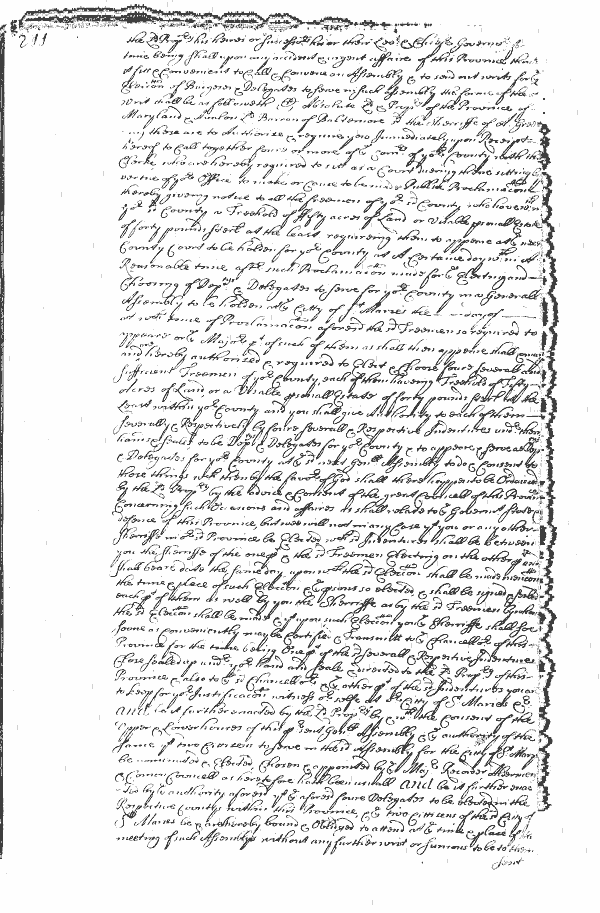 211
the Ld Propry his heires or Successrs his or their Leut & Chiefe Governor
time being shall upon any accident & urgent affaire of this Province think
it fitt & Convenient to Call & Convene an Assembly & to send out writs for
Eleccon of Burgeses & Delegates to serve in such Assembly the forme of the
writ shall be as followeth Absolute Ld & Propry of the Province of
Maryland & Avalon Ld Baron of Baltemore &c to the Sherriffe of A Greet
ing these are to Authorize & require you Immediately upon Receipt
hereof to Call together foure or more of ye Comrs of yor County with the
Clerke who are hereby required to sitt as a Court & during their sitting by
vertue of yor Office to make or Cause to be made Publick Proclamacon
thereby giveing notice to all the freemen of yor sd County who have wthin
yor sd County a Freehold of fifty acres of Land or Visable psonall Estate
of forty pounds sterl at the least requireing them to appeare at ye next
County Court to be holden for yor County at A Certaine day wthin A
Reasonable time after such Proclamacon made for ye Electing and
Choosing of Deptys & Delegates to serve for yor County in a Generall
Assembly to be holden att ye City of St Maries the day of
at wch time of Proclamacon aforesd the sd Freemen so required to
appeare or ye Major pt of such of them as shall then appeare shall
and may
and hereby authorized & required to Elect & Choose foure severall and
sufficient Freemen of yor County each of them haveing A Freehold of Fifty
acres of Land or a Visable psonall Estate of forty pounds sterl at the
Least within yor County and you shall give Authority to each of them
severally & Respectively by foure severall & Respective Indentures under their
hands & seales to be Deptys & Delegates for yor County & to appeare & serve as Deptys
& Delegates for yor County at ye sd next Genll Assembly to doe & Consent to
those things wch then by the favor of God shall there happen to be Ordained
by the Ld Propry by the advice & Consent of the great Councell of this Province
Concerning such Occasions and affaires as shall relate to ye Governmt State &
defence of this Province but wee will not in any Case yt you or any other
Sherriffe in ye sd Province be Elected wch sd Indentures shall be between
you the Sherriffe of the one pt & the sd Freemen Electing on the other pt and
shall beare date the same day upon wch the sd Eleccon shall be made
the time & place of such Eleccon & ye psons so elected & shall be signed & sealed
each pt of them as well by you the Sherriffe as by the sd Freemen
the sd Eleccon shall be made & yt upon such Eleccon you ye Sherriffe shall soe
soone as Conveniently may be Certifie & Transmitt to ye Chancellr of this
Province for the time being One pt of the sd severall & Respective Indentures
Close sealed up under yor hand and seale & directed to the Ld Propry of this
Province & also to ye sd Chancellr & ye other pt of the sd Indentures you are
to keep for yor Justificacon witness or selfe at or City of St Maries &c
And be it further enacted by the Ld Propry by & wth the Consent of the
upper & Lower houses of this psent Genll Assembly & ye authority of the
same yt two Cittizens to serve in the sd Assembly for the City of St Maryes
be nominated & Elected Chosen & appointed by ye Mayr Recorder Aldermen
& Comon Councell as heretofore hath been usuall And be it further enac
ted by ye authority aforesd yt ye aforesd foure Delegates to be elected in the
Respective Countys within this Province & ye two Citizens of the sd City of
St Maries be & are hereby bound & Obliged to attend at ye time & place of the
meeting of such Assemblys without any further writ or sumons to be to them
sent